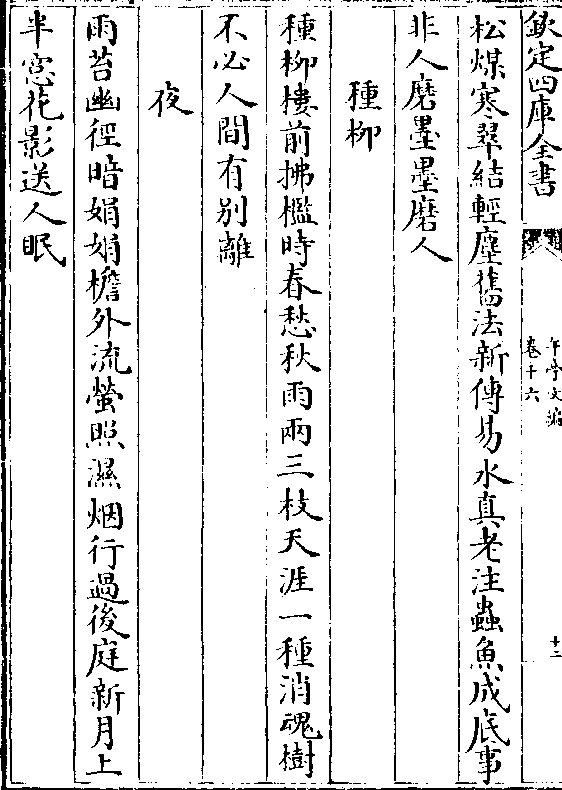 欽定四庫全書
午亭文編
卷十六
十二
松煤寒翠結輕塵舊法新傳易水真老注蟲魚成底事
非人磨墨墨磨人
種柳
種柳樓前拂檻時春愁秋雨兩三枝天涯一種消魂樹
不必人間有别離
夜
雨苔幽徑暗娟娟檐外流螢照濕烟行過後庭新月上
半窓花影送人眠